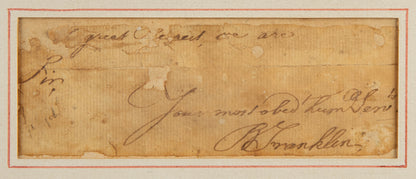 great Respect, we are
Sir
Your most obed. hum. Serv.ts
B Franklin